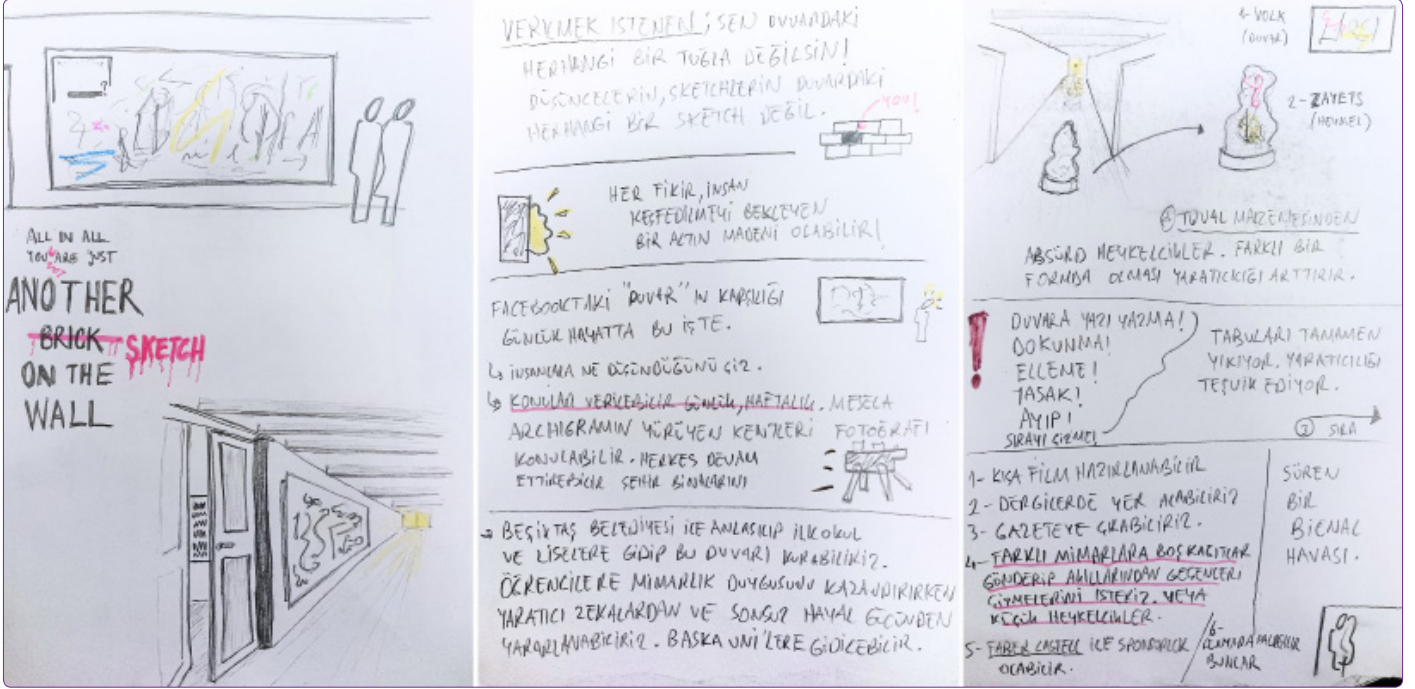 ALL IN ALL
YOU ARE JUST
ANOTHER
BRICK SKETCH
ON THE
WALL
VERİLMEK İSTENEN; SEN DUVARDAKİ
HERHANGİ BİR TUĞLA DEĞİLSİN!
DÜŞÜNCELERİN, SKETCHLERİN DUVARDAKİ
HERHANGİ BİR SKETCH DEĞİL.
YOU!
HER FİKİR, İNSAN
KEŞFEDİLMEYİ BEKLEYEN
BİR ALTIN MADENİ OLABİLİR!
FACEBOOKTAKİ "DUVAR"IN KARŞILIĞI
GÜNLÜK HAYATTA BU İŞTE.
↳ İNSANLARA NE DÜŞÜNDÜĞÜNÜ ÇİZ.
↳ KONULAR VERİLEBİLİR GÜNLÜK, HAFTALIK. MESELA
ARCHIGRAMIN YÜRÜYEN KENTLERİ FOTOĞRAFI
KONULABİLİR. HERKES DEVAM
ETTİREBİLİR ŞEHİR BİNALARINI
→ BEŞİKTAŞ BELEDİYESİ İLE ANLAŞILIP İLKOKUL
VE LİSELERE GİDİP BU DUVARI KURABİLİRİZ.
ÖĞRENCİLERE MİMARLIK DUYGUSUNU KAZANDIRIRKEN
YARATICI ZEKALARDAN VE SONSUZ HAYAL GÜCÜNDEN
YARARLANABİLİRİZ. BAŞKA ÜNİ'LERE GİDİLEBİLİR.
1- VOLK
(DUVAR)
2- ZAYETS
(HEYKEL)
TUVAL MALZEMESİNDEN
ABSÜRD HEYKELCİKLER. FARKLI BİR
FORMDA OLMASI YARATICILIĞI ARTTIRIR.
DUVARA YAZI YAZMA!
DOKUNMA!
ELLEME!
YASAK!
AYIP!
SIRAYI ÇİZME!
TABULARI TAMAMEN
YIKIYOR. YARATICILIĞI
TEŞVİK EDİYOR.
③ SIRA
1- KISA FİLM HAZIRLANABİLİR
2- DERGİLERDE YER ALABİLİRİZ
3- GAZETEYE ÇIKABİLİRİZ.
4- FARKLI MİMARLARA BOŞ KAĞITLAR
GÖNDERİP AKILLARINDAN GEÇENLERİ
ÇİZMELERİNİ İSTERİZ. VEYA
KÜÇÜK HEYKELCİKLER.
5- FABER CASTELL İLE SPONSORLUK
OLABİLİR.
6-
BUNLAR
SÜREN
BİR
BİENAL
HAVASI.